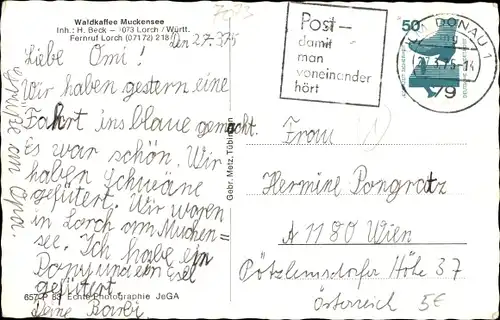 7073
Waldkaffee Muckensee
Inh.: H. Beck – 7073 Lorch / Württ.
Fernruf Lorch (07172) 218
den 27.3.75
Liebe Omi!
Wir haben gestern eine
Fahrt ins blaue gemacht.
Es war schön. Wir
haben Schwäne
gefütert. Wir waren
in Lorch am Muchen=
see. Ich habe ein
Pony und ein Esel
gefütert.
Deine Barbi
Grüße an Opa.
657 P 83 Echte Photographie JeGA
Gebr. Metz, Tübingen
Post–
damit
man
voneinander
hört
50
DONAU 1
79
Frau
Hermine Pongratz
A 1180 Wien
Pötzleinsdorfer Höhe 37
Österreich
5€